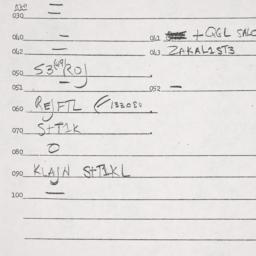 030
030
040 –
041 + QGL SALC
042 –
043 ZAKAL1ST3
050 S3(49/R0)
051 –
052 –
060 Re/FTL (133080
070 S+T1K
080 O
090 KLAJN S+T1KL
100 =